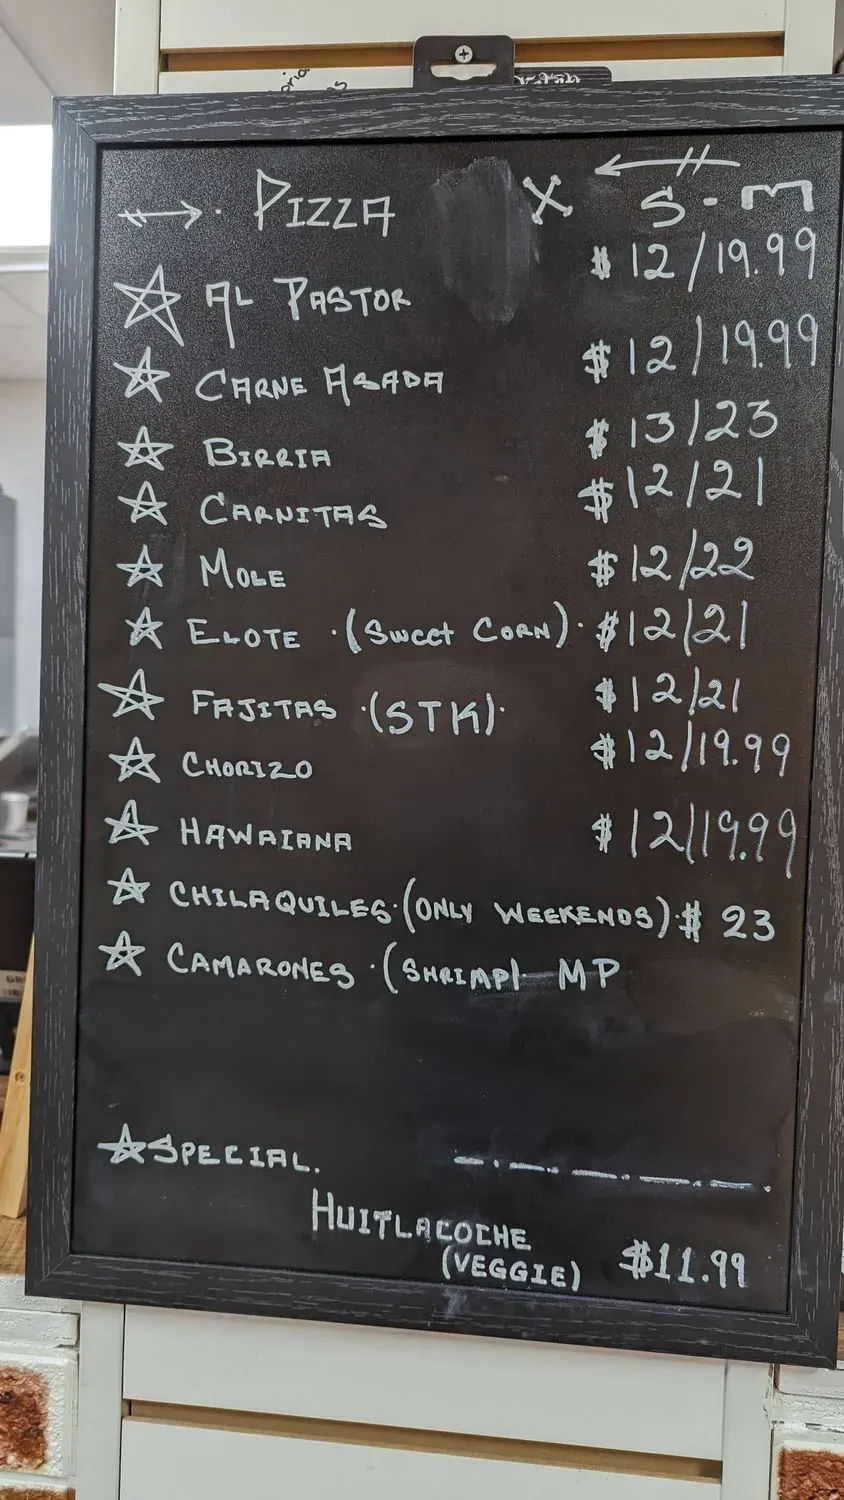 PIZZA X S-M
AL PASTOR $12/19.99
CARNE ASADA $12/19.99
BIRRIA $13/23
CARNITAS $12/21
MOLE $12/22
ELOTE ·(Sweet CORN)· $12/21
FAJITAS ·(STK)· $12/21
CHORIZO $12/19.99
HAWAIANA $12/19.99
CHILAQUILES·(ONLY WEEKENDS)·$ 23
CAMARONES ·(SHRIMP)· MP
SPECIAL.
HUITLACOCHE
(VEGGIE) $11.99